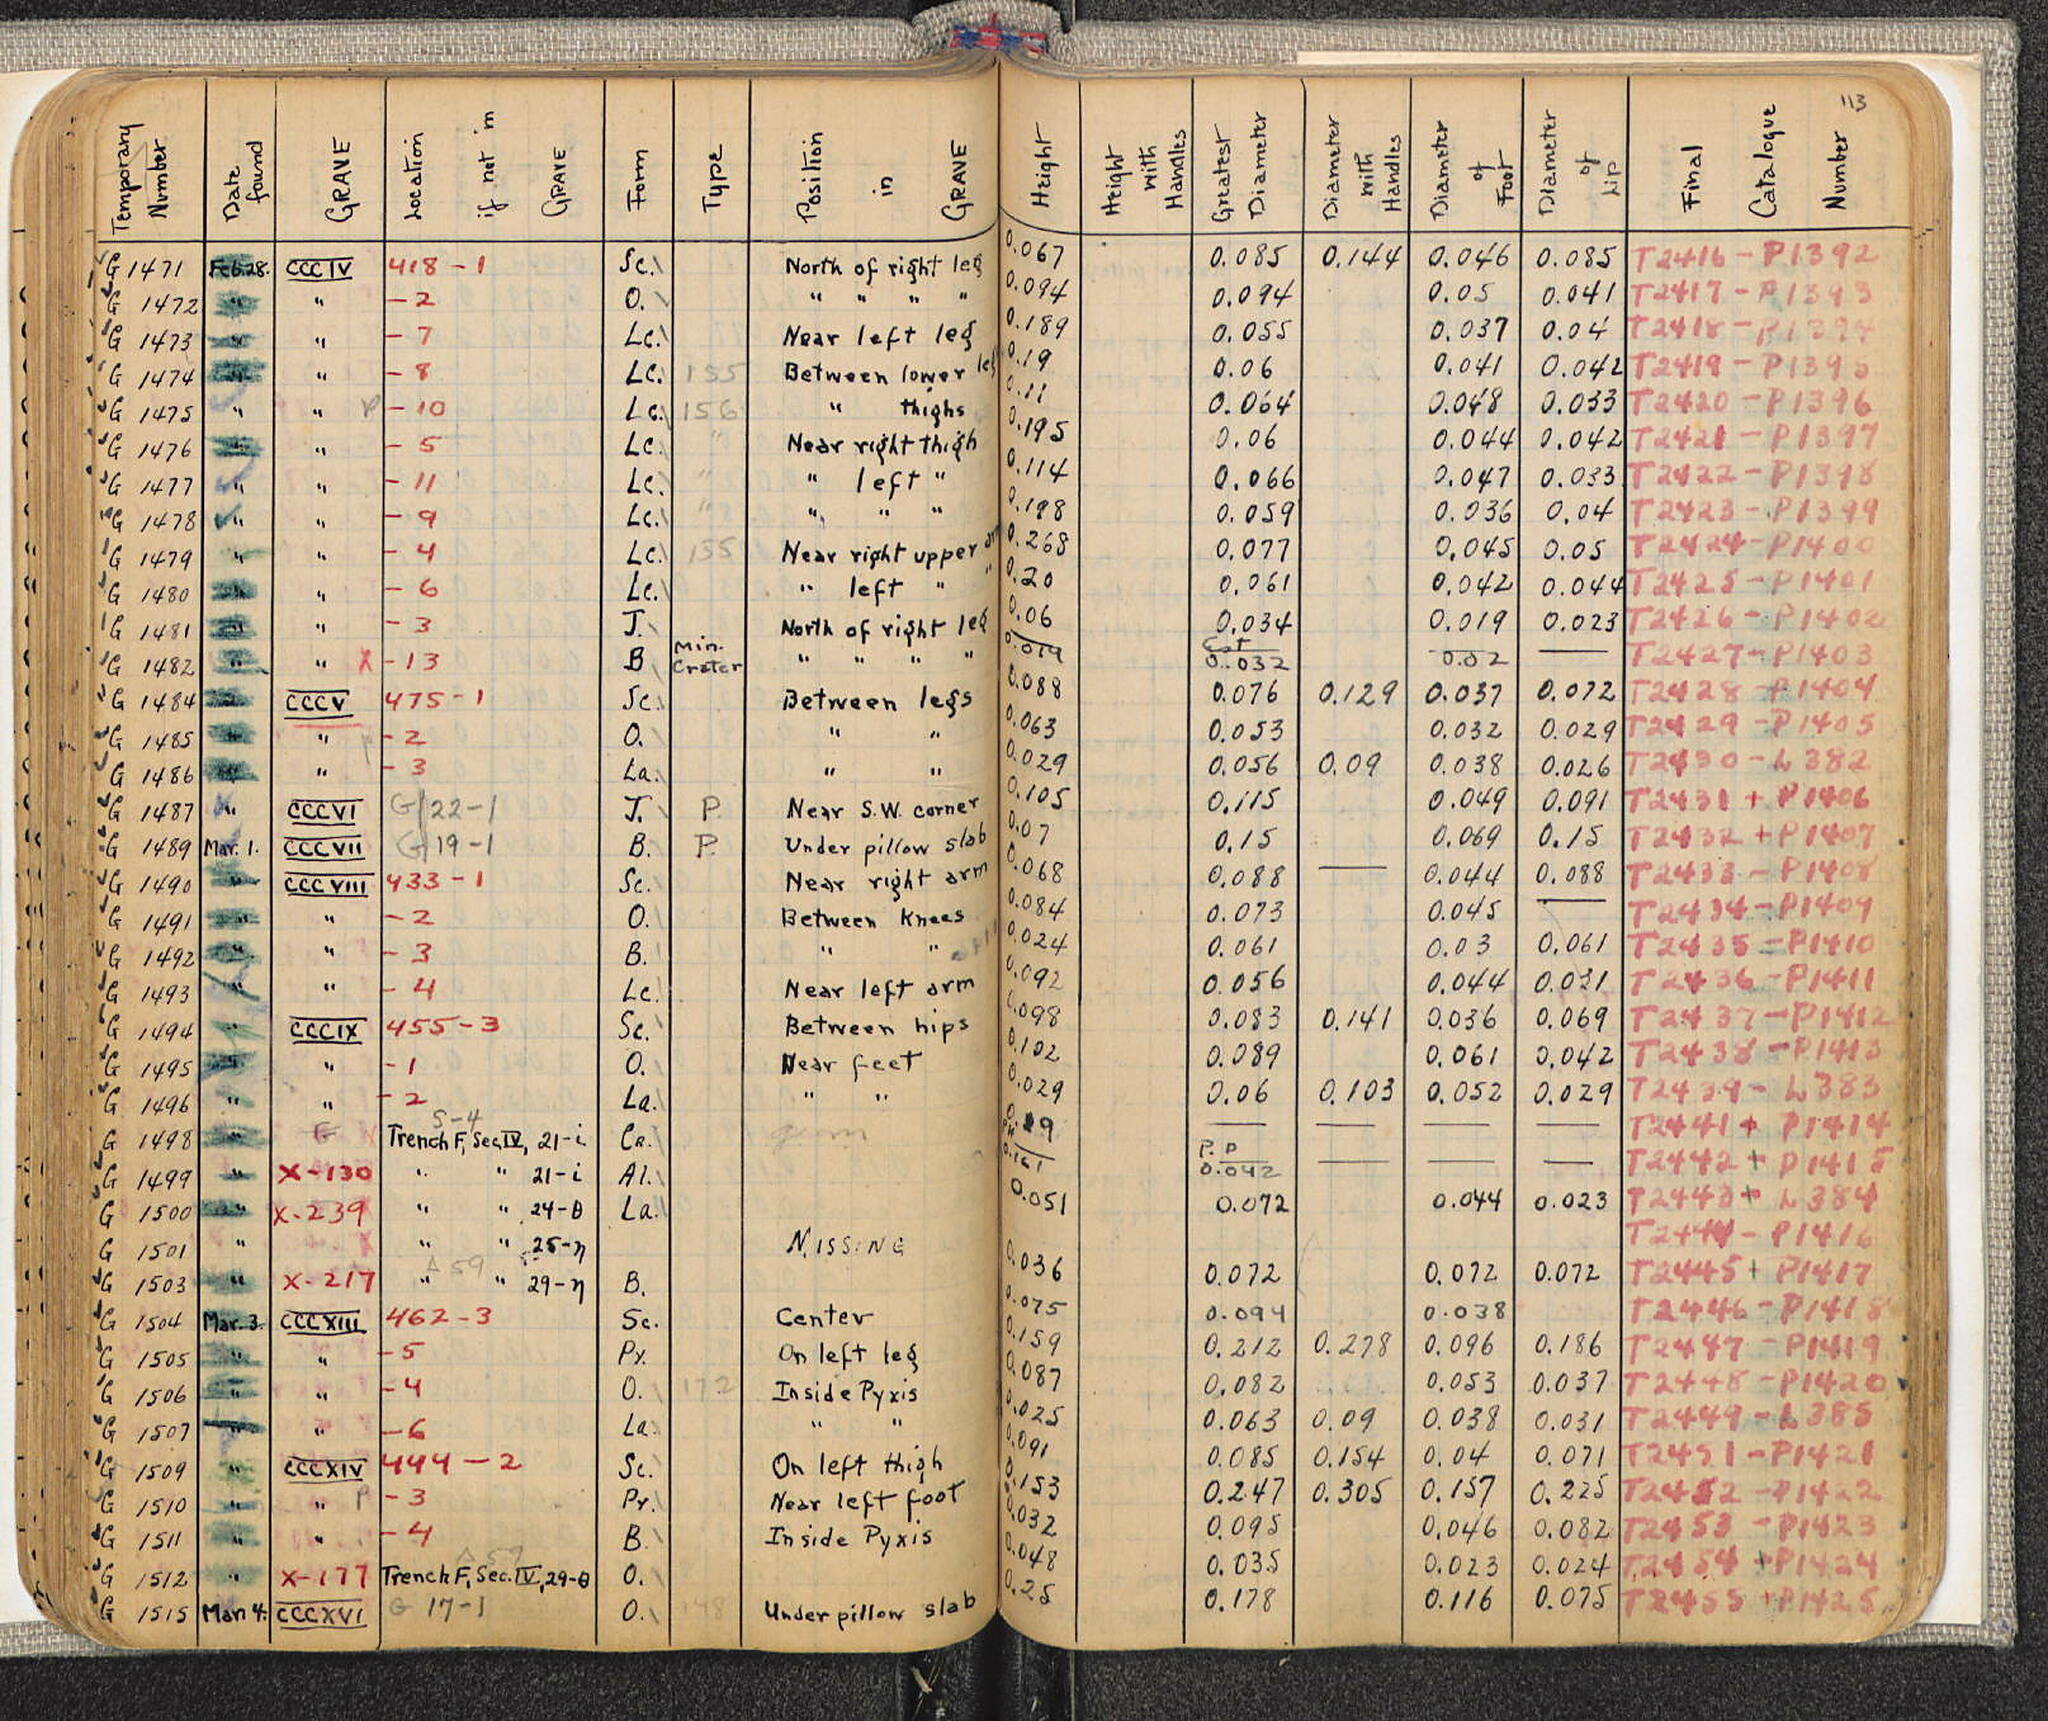 113
Temporary Number | Date found | GRAVE | Location if not in GRAVE | Form | Type | Position in GRAVE | Height | Height with Handles | Greatest Diameter | Diameter with Handles | Diameter of Foot | Diameter of Lip | Final Catalogue Number
G 1471 Feb. 28. CCCIV 418-1 Sc. North of right leg 0.067 0.085 0.144 0.046 0.085 T2416-P1392
G 1472 " " -2 O. " " " " 0.094 0.094 0.05 0.041 T2417-P1393
G 1473 " " -7 Lc. Near left leg 0.189 0.055 0.037 0.04 T2418-P1394
G 1474 " " -8 Lc. 155 Between lower leg 0.19 0.06 0.041 0.042 T2419-P1395
G 1475 " " P -10 Lc. 156 " thighs 0.11 0.064 0.048 0.033 T2420-P1396
G 1476 " " -5 Lc. " Near right thigh 0.195 0.06 0.044 0.042 T2421-P1397
G 1477 " " -11 Lc. " " left " 0.114 0.066 0.047 0.033 T2422-P1398
G 1478 " " -9 Lc. " " " " 0.198 0.059 0.036 0.04 T2423-P1399
G 1479 " " -4 Lc. 155 Near right upper arm 0.268 0.077 0.045 0.05 T2424-P1400
G 1480 " " -6 Lc. " left " " 0.20 0.061 0.042 0.044 T2425-P1401
G 1481 " " -3 J. North of right leg 0.06 0.034 0.019 0.023 T2426-P1402
G 1482 " " X -13 B Min. Crater " " " " 0.019 Est 0.032 0.02 — T2427-P1403
G 1484 " CCCV 475-1 Sc. Between legs 0.088 0.076 0.129 0.037 0.072 T2428-P1404
G 1485 " " -2 O. " " 0.063 0.053 0.032 0.029 T2429-P1405
G 1486 " " -3 La. " " 0.029 0.056 0.09 0.038 0.026 T2430-L382
G 1487 " CCCVI G/22-1 J. P. Near S.W. corner 0.105 0.115 0.049 0.091 T2431+P1406
G 1489 Mar. 1. CCCVII G/19-1 B. P. Under pillow slab 0.07 0.15 0.069 0.15 T2432+P1407
G 1490 " CCCVIII 433-1 Sc. Near right arm 0.068 0.088 — 0.044 0.088 T2433-P1408
G 1491 " " -2 O. Between Knees 0.084 0.073 0.045 — T2434-P1409
G 1492 " " -3 B. " " 0.024 0.061 0.03 0.061 T2435-P1410
G 1493 " " -4 Lc. Near left arm 0.092 0.056 0.044 0.031 T2436-P1411
G 1494 " CCCIX 455-3 Sc. Between hips 0.098 0.083 0.141 0.036 0.069 T2437-P1412
G 1495 " " -1 O. Near feet 0.102 0.089 0.061 0.042 T2438-P1413
G 1496 " " -2 La. " " 0.029 0.06 0.103 0.052 0.029 T2439-L383
S-4
G 1498 " Trench F, Sec. IV, 21-i Ca. — — — — T2441+P1414
G 1499 " X-130 " " 21-i Al. 0.161 P.P. 0.042 — — — T2442+P1415
G 1500 " X-239 " " 24-θ La. 0.051 0.072 0.044 0.023 T2443+L384
G 1501 " X " " 25-η MISSING T2444-P1416
Δ 59
G 1503 " X-217 " " 29-η B. 0.036 0.072 0.072 0.072 T2445+P1417
G 1504 Mar. 3. CCCXIII 462-3 Sc. Center 0.075 0.094 0.038 T2446-P1418
G 1505 " " -5 Py. On left leg 0.159 0.212 0.278 0.096 0.186 T2447-P1419
G 1506 " " -4 O. 172 Inside Pyxis 0.087 0.082 0.053 0.037 T2448-P1420
G 1507 " " -6 La. " " 0.025 0.063 0.09 0.038 0.031 T2449-L385
G 1509 " CCCXIV 444-2 Sc. On left thigh 0.091 0.085 0.154 0.04 0.071 T2451-P1421
G 1510 " " P -3 Py. Near left foot 0.153 0.247 0.305 0.157 0.225 T2452-P1422
G 1511 " " -4 B. Inside Pyxis 0.032 0.095 0.046 0.082 T2453-P1423
Δ 57
G 1512 " X-177 Trench F, Sec. IV, 29-θ O. 0.048 0.035 0.023 0.024 T2454+P1424
G 1515 Mar. 4. CCCXVI G 17-1 O. 148 Under pillow slab 0.25 0.178 0.116 0.075 T2455+P1425